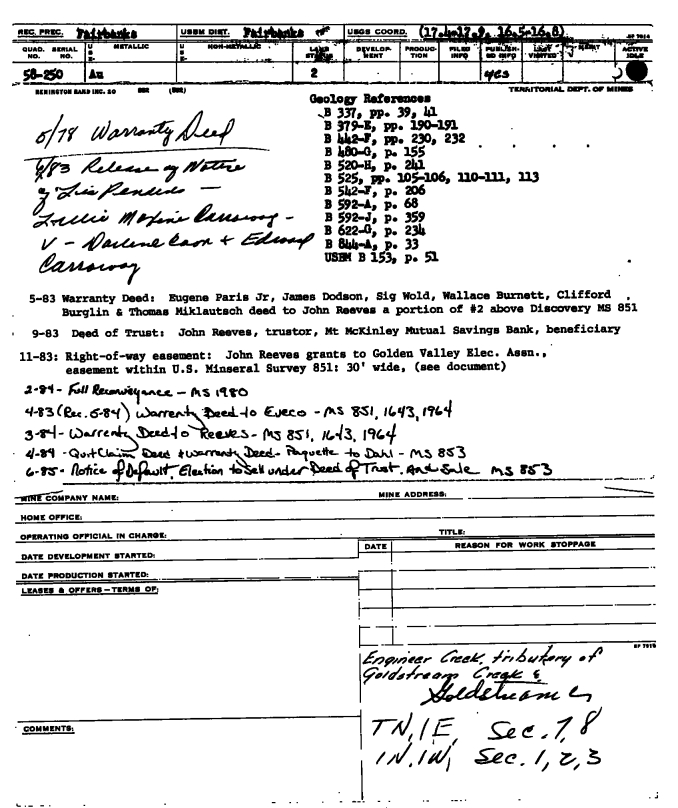 REC. PREC. Fairbanks USBM DIST. Fairbanks USGS COORD. (17.4-17.9, 16.5-16.8) SF 7014
QUAD. SERIAL NO. NO. METALLIC NON-METALLIC LAND STATUS DEVELOP- MENT PRODUC- TION FILED INFO PUBLISH- ED INFO LAST VISITED ACTIVE IDLE
58-250 Au 2 yes
REMINGTON RAND INC. 20 TERRITORIAL DEPT. OF MINES
Geology References
B 337, pp. 39, 41
B 379-E, pp. 190-191
B 442-F, pp. 230, 232
B 480-G, p. 155
B 520-H, p. 241
B 525, pp. 105-106, 110-111, 113
B 542-F, p. 206
B 592-A, p. 68
B 592-J, p. 359
B 622-G, p. 234
B 844-A, p. 33
USBM B 153, p. 51
5/78 Warranty Deed
6/83 Release of Notice
of Lis Pendens -
Maxine Carroway -
V - Darlene & Edward
Carroway
5-83 Warranty Deed: Eugene Paris Jr, James Dodson, Sig Wold, Wallace Burnett, Clifford
Burglin & Thomas Miklautsch deed to John Reeves a portion of #2 above Discovery MS 851
9-83 Deed of Trust: John Reeves, trustor, Mt McKinley Mutual Savings Bank, beneficiary
11-83: Right-of-way easement: John Reeves grants to Golden Valley Elec. Assn.,
easement within U.S. Minseral Survey 851: 30' wide, (see document)
2-84- Full Reconveyance - MS 1980
4-83 (Rec. 5-84) Warrenty Deed to Eveco - MS 851, 1643, 1964
3-84- Warrenty Deed to Reeves - MS 851, 1643, 1964
4-84 - Quit Claim Deed & Warrenty Deed - Paquette to Dahl - MS 853
6-85- Notice of Default, Election to Sell under Deed of Trust, And Sale MS 853
MINE COMPANY NAME: MINE ADDRESS:
HOME OFFICE:
OPERATING OFFICIAL IN CHARGE: TITLE:
DATE DEVELOPMENT STARTED:
DATE REASON FOR WORK STOPPAGE
DATE PRODUCTION STARTED:
LEASES & OFFERS - TERMS OF:
SF 7015
Engineer Creek, tributary of
Goldstream Creek &
Goldstream Cr
COMMENTS:
TN, 1E, Sec. 7, 8
1N, 1W, Sec. 1, 2, 3